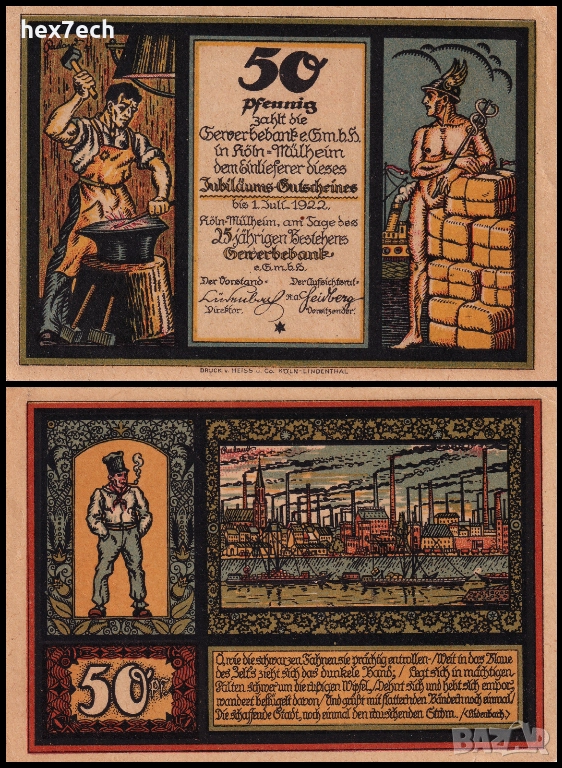 hex7ech
50
Pfennig
zahlt die
Gewerbebank e.G.m.b.H.
in Köln-Mülheim
dem Einlieferer dieses
Jubiläums-Gutscheines
bis 1. Juli 1922.
Köln-Mülheim, am Tage des
25 jährigen Bestehens
Gewerbebank
e.G.m.b.H.
Der Vorstand: Der Aufsichtsrat:
Direktor. Vorsitzender.
DRUCK v. HEISS u. Co. KÖLN-LINDENTHAL
50 Pf.
O, wie die schwarzen Fahnen sie prächtig entrollen-/Weit in das Blaue
des Zelts zieht sich das dunkele Band;/ Legt sich in mächtigen
Falten schwer um die luftigen Wipfel,/Dehnt sich und hebt sich empor,
wandert beflügelt davon/ Und grüßt mit flatternden Bändern noch einmal/
Die schaffende Stadt, noch einmal den rauschenden Strom./
BAZAR